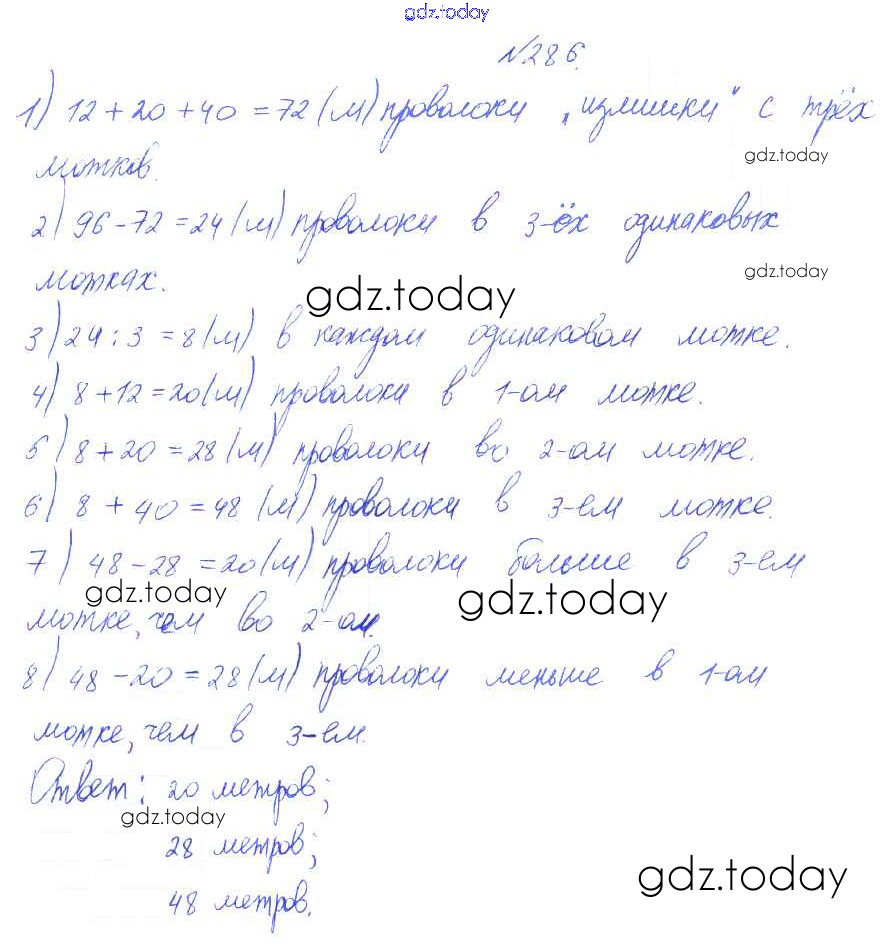 gdz.today
№286.
1) 12 + 20 + 40 = 72 (м) проволоки „излишки" с трёх
gdz.today
мотков.
2) 96 - 72 = 24 (м) проволоки в 3-ёх одинаковых
gdz.today
мотках.
gdz.today
3) 24 : 3 = 8 (м) в каждом одинаковом мотке.
4) 8 + 12 = 20 (м) проволоки в 1-ом мотке.
5) 8 + 20 = 28 (м) проволоки во 2-ом мотке.
6) 8 + 40 = 48 (м) проволоки в 3-ем мотке.
7) 48 - 28 = 20 (м) проволоки больше в 3-ем
gdz.today
gdz.today
мотке, чем во 2-ом.
8) 48 - 20 = 28 (м) проволоки меньше в 1-ом
мотке, чем в 3-ем.
Ответ: 20 метров;
gdz.today
28 метров;
gdz.today
48 метров.